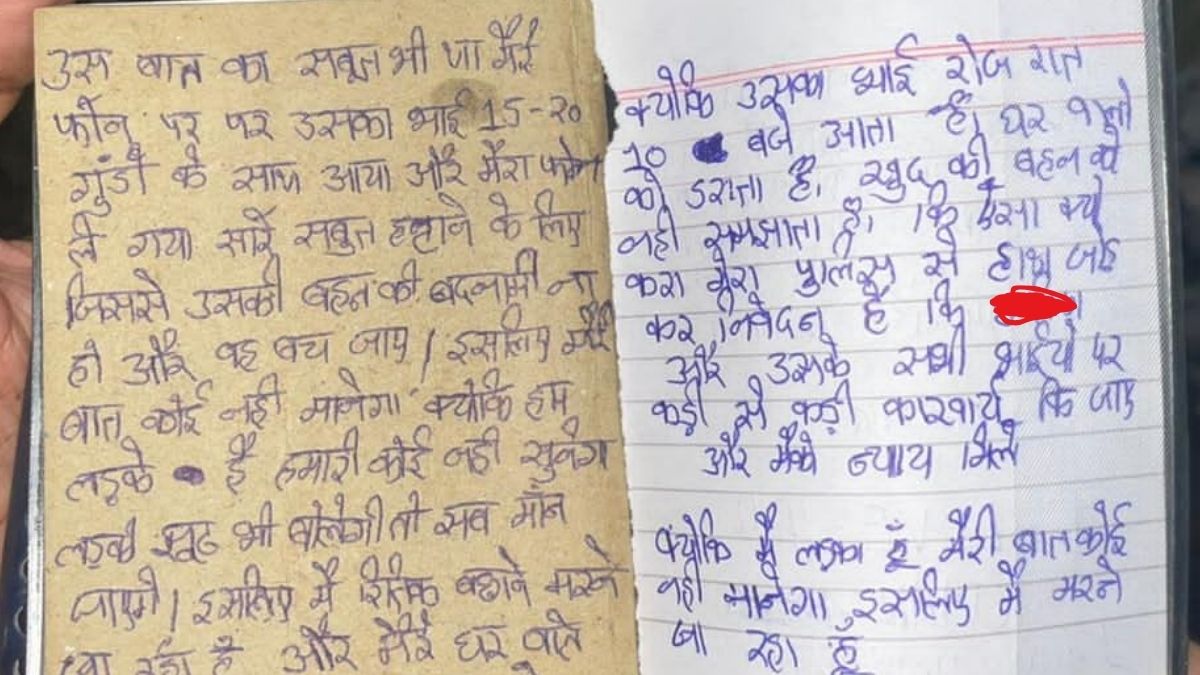 उस बात का सबूत भी था मैरे
फोन पर पर उसका भाई 15-20
गुंडो के साथ आया और मैरा फोन
ले गया सारे सबुत हटाने के लिए
जिससे उसकी बहन की बदनामी ना
हो और वह बच जाए / इसलिए मैरी
बात कोई नही मानेगा क्योकि हम
लड़के है हमारी कोई नही सुनेगा
लड़की झूठ भी बोलेगी तो सब मान
जाएगे / इसलिए मै मरने
जा रहा हूँ और मैरे घर वाले
क्योकि उसका भाई रोज रात
10 बजे आता है, घर वालो
को डराता है, खुद की बहन को
नही समझाता है, कि ऐसा क्यो
करा मेरा पुलिस से हाथ जोड़
कर निवेदन है कि
और उसके सभी भाईयो पर
कड़ी से कड़ी कारवाये कि जाए
और मैके न्याय मिले
क्योकि मै लड़का हूँ मैरी बात कोई
नही मानेगा इसलिए मै मरने
जा रहा हूँ